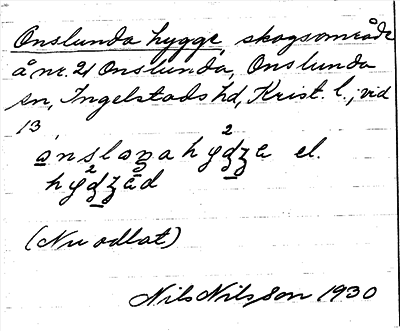 Onslunda hygge, skogsområde
å nr. 21 Onslunda, Onslunda
sn, Ingelstads hd, Krist. l.; vid
13
el.
(Nu odlat)
Nils Nilsson 1930